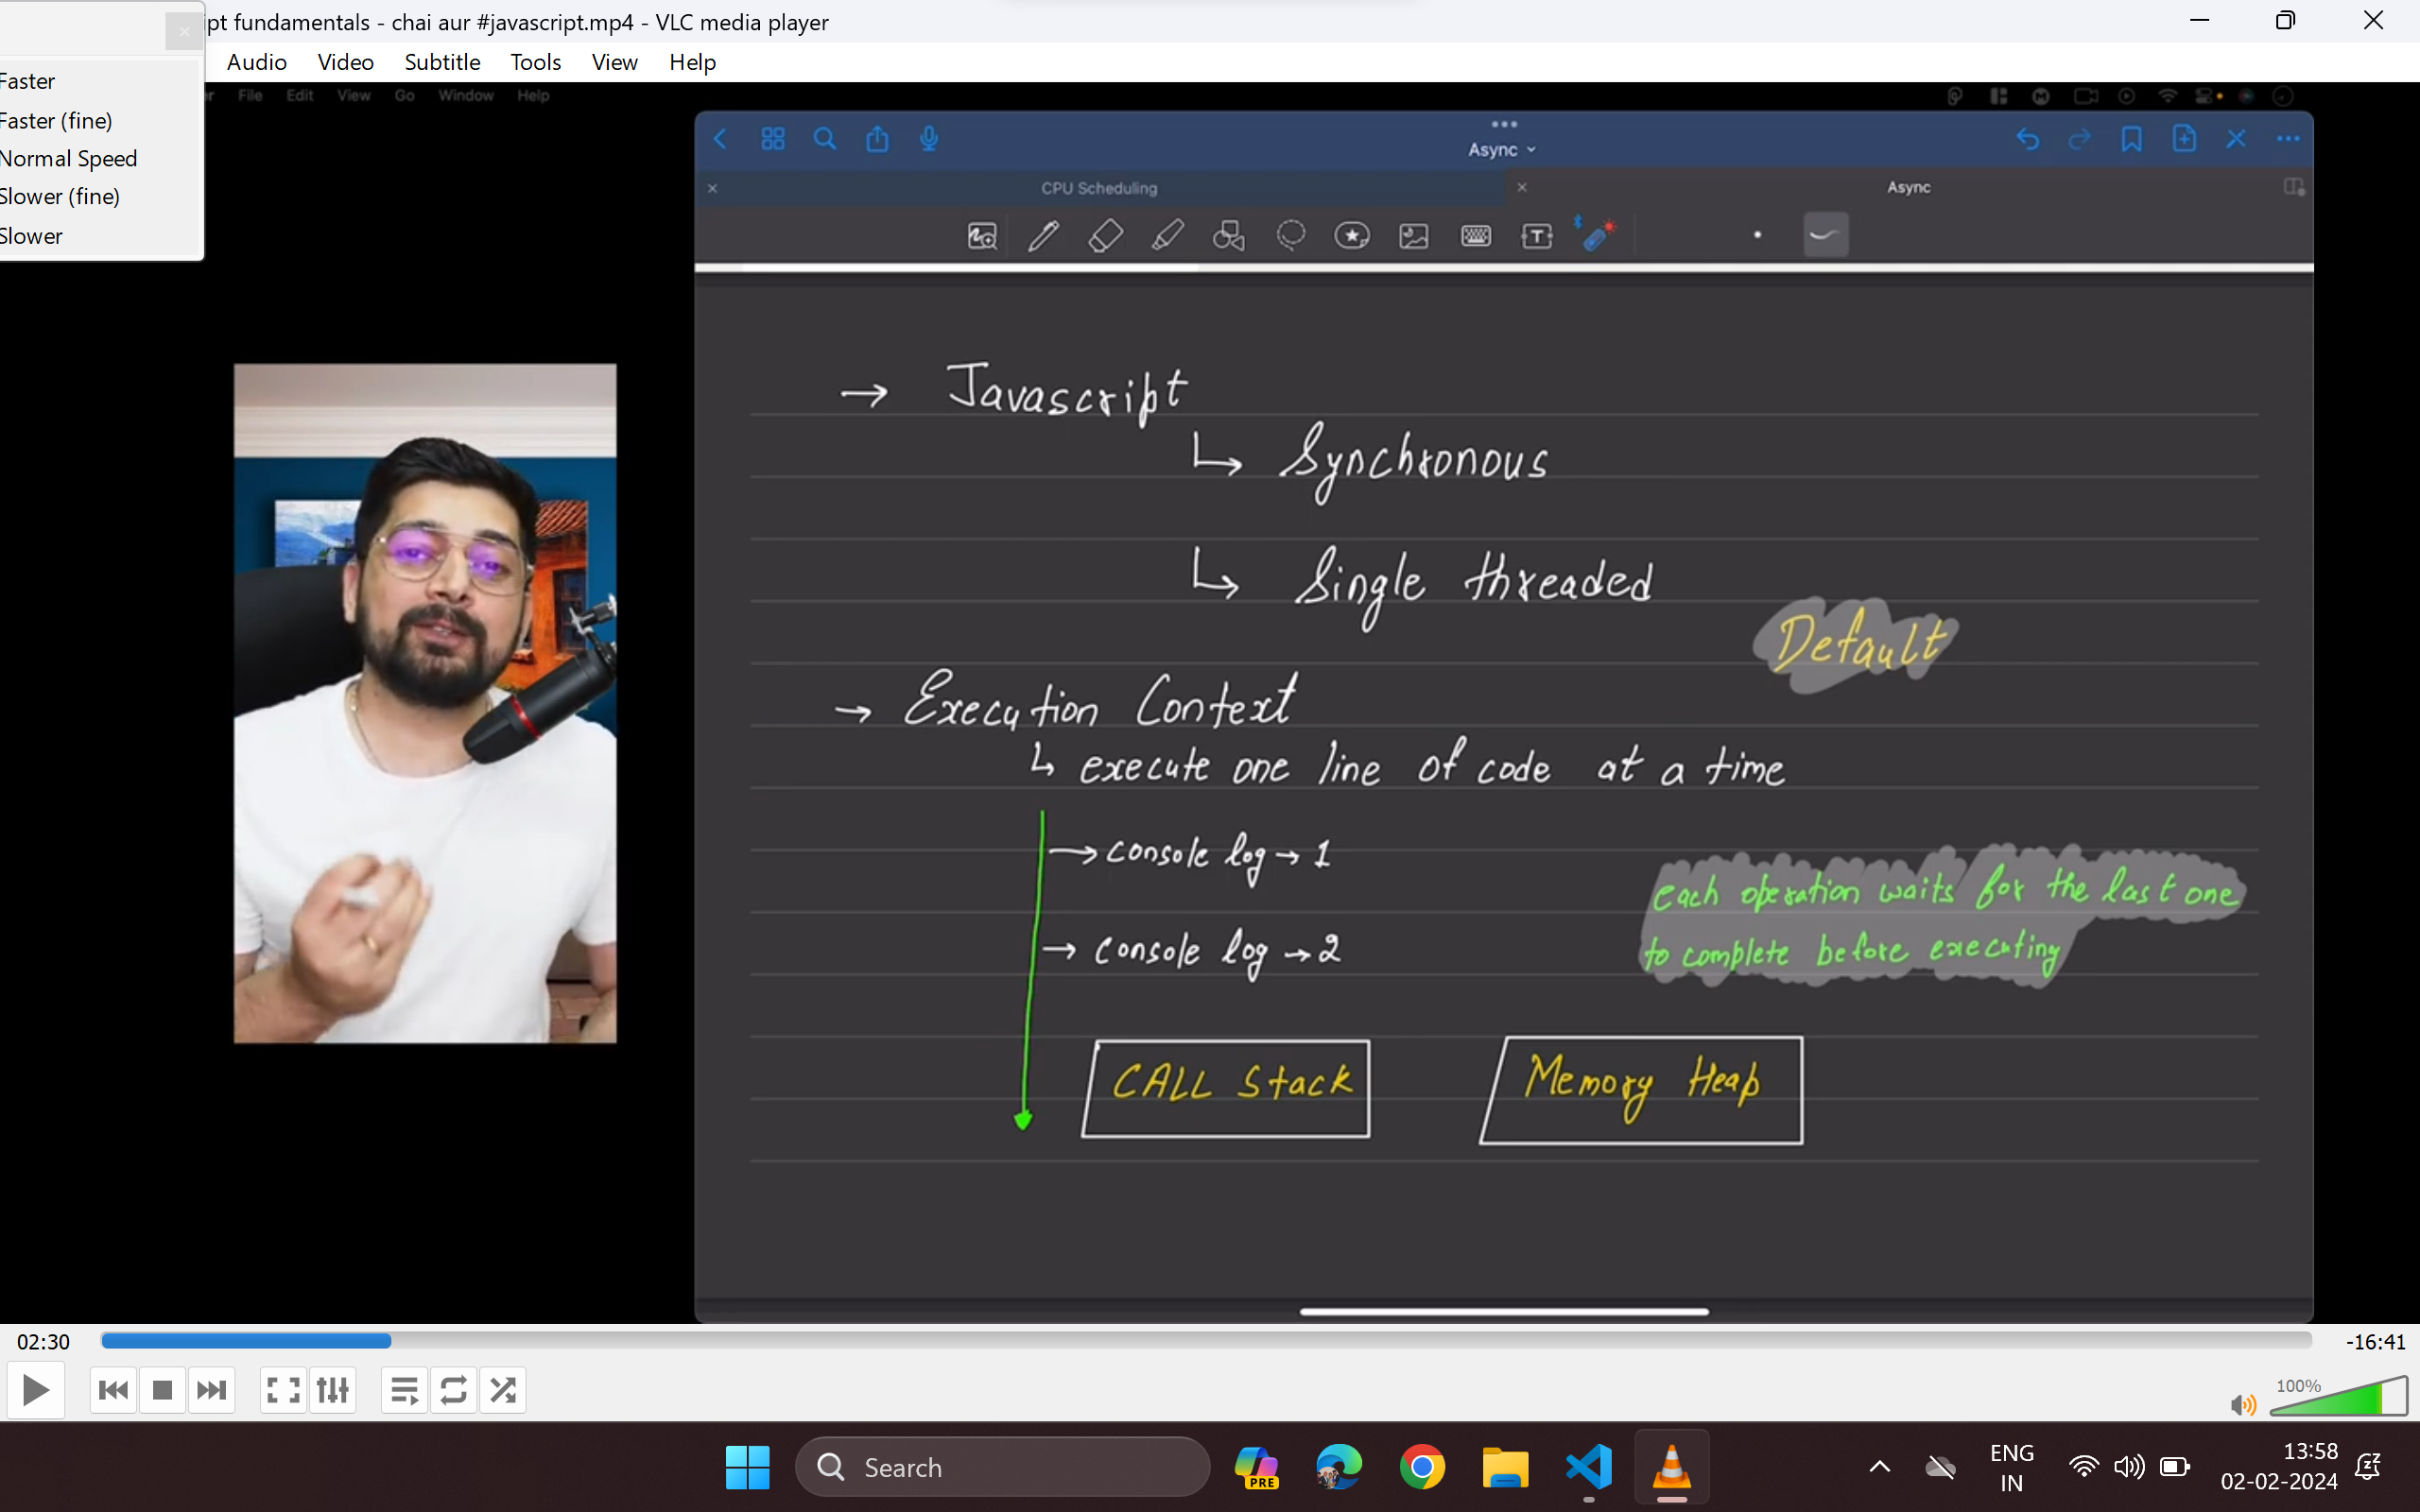 ipt fundamentals - chai aur #javascript.mp4 - VLC media player
Audio Video Subtitle Tools View Help
Faster
Faster (fine)
Normal Speed
Slower (fine)
Slower
File Edit View Go Window Help
Async
CPU Scheduling
Async
→ Javascript
↳ Synchronous
↳ Single threaded
Default
→ Execution Context
↳ execute one line of code at a time
→ console log → 1
→ console log → 2
each operation waits for the last one
to complete before executing
CALL Stack
Memory Heap
02:30
-16:41
100%
Search
PRE
ENG
IN
13:58
02-02-2024